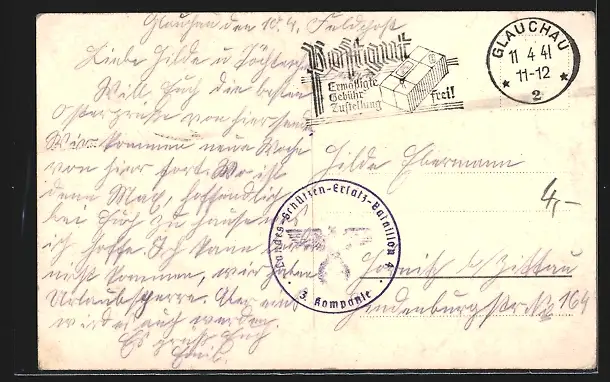 Glauchau den 10.4. Feldpost
Liebe Hilde u Töchterchen
Will Euch die besten
Ostergrüße von hier senden
Wir kommen neue Woche
von hier fort. Wo ist
denn Max, hoffendlich
bei Euch zu hause
ich hoffe. Ich kann
nicht kommen, wir haben
Urlaubsperre. Aber
wird es auch werden.
Es grüßt Euch
Emil
Postgut
Ermäßigte
Gebühr
Zustellung
frei!
GLAUCHAU
11 4 41
11-12
2
Hilde Ebermann
4,-
Landes-Schützen-Ersatz-Bataillon 4
3. Kompanie
Zittau
Hindenburgstr. No 164